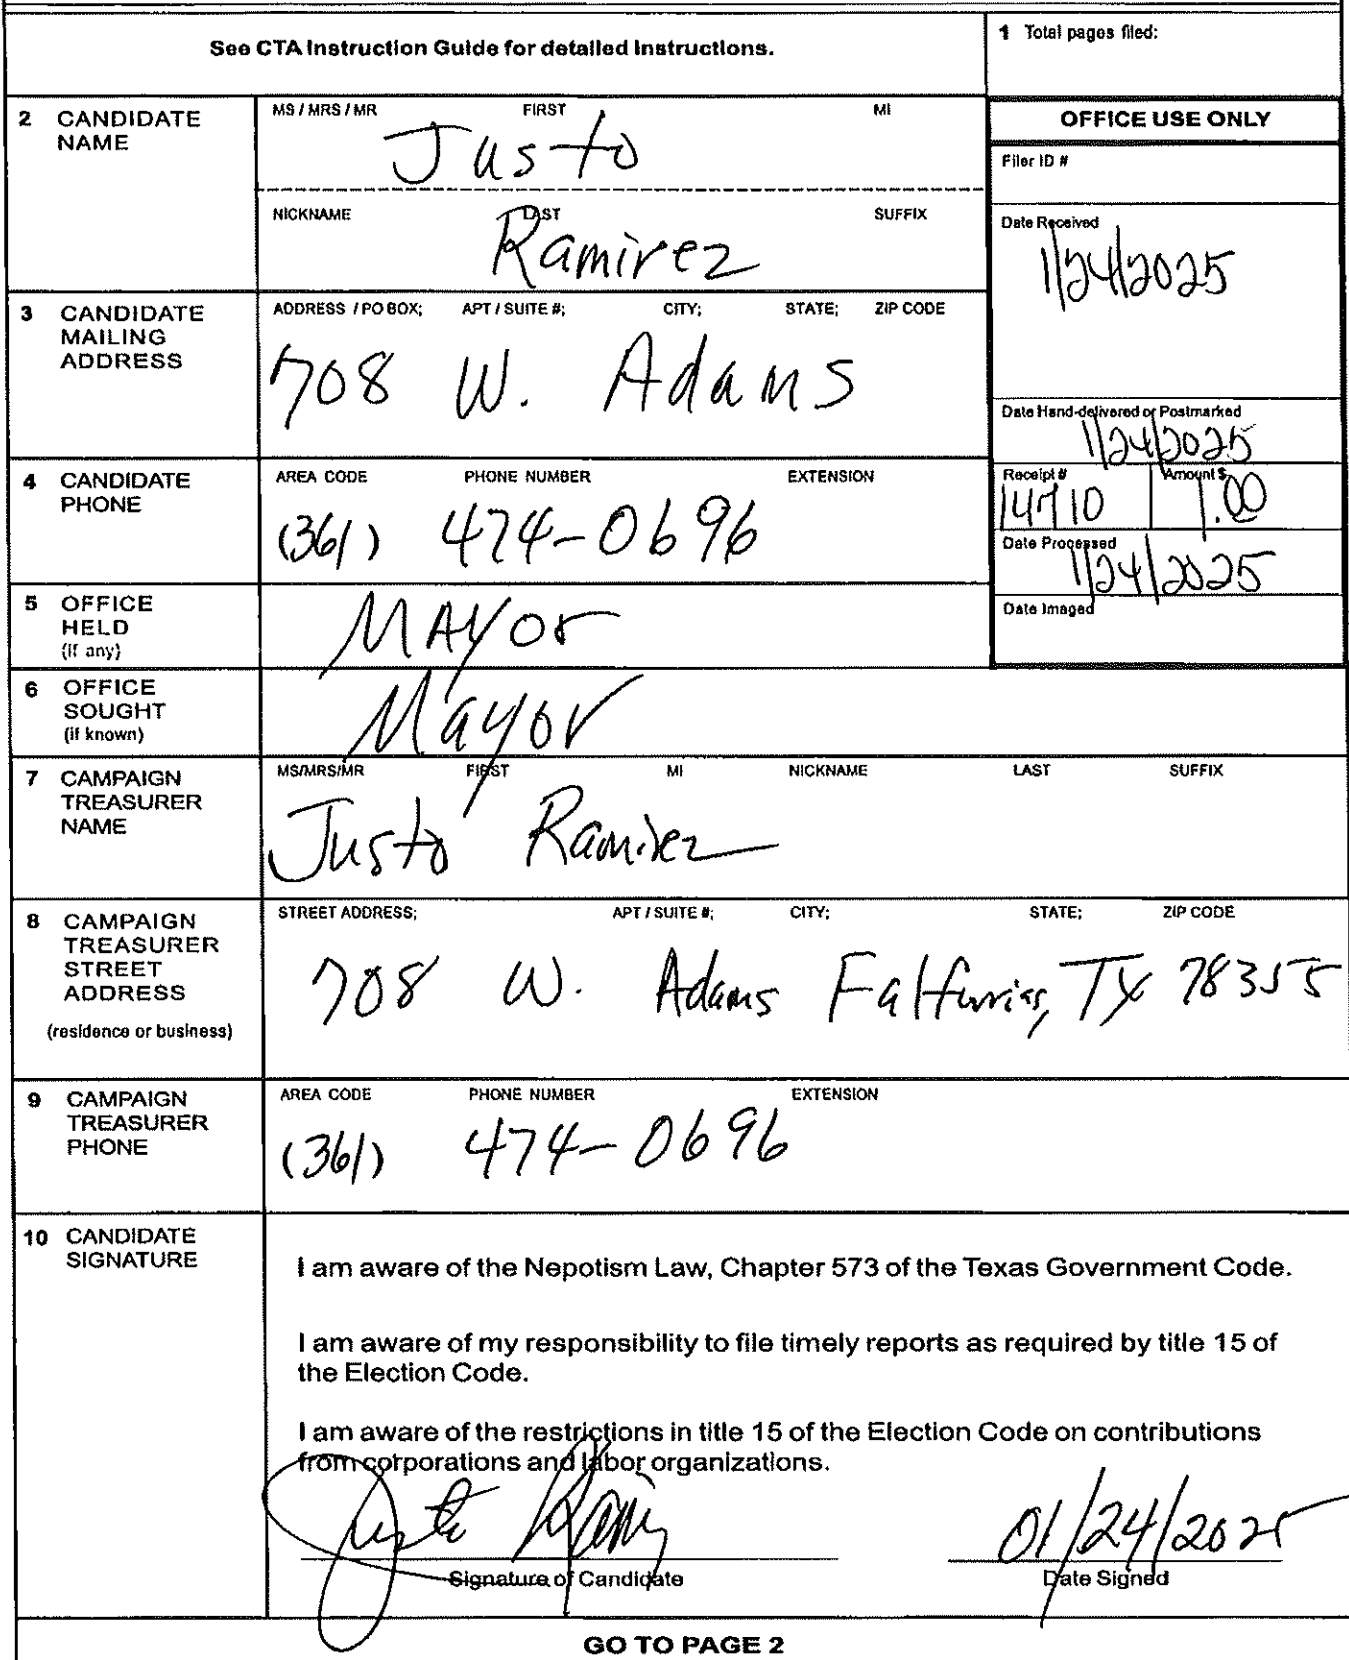 See CTA Instruction Guide for detailed instructions.
1 Total pages filed:
2 CANDIDATE NAME
MS / MRS / MR FIRST MI
Justo
NICKNAME LAST SUFFIX
Ramirez
OFFICE USE ONLY
Filer ID #
Date Received
1/24/2025
3 CANDIDATE MAILING ADDRESS
ADDRESS / PO BOX; APT / SUITE #; CITY; STATE; ZIP CODE
708 W. Adams
Date Hand-delivered or Postmarked
1/24/2025
4 CANDIDATE PHONE
AREA CODE PHONE NUMBER EXTENSION
(361) 474-0696
Receipt # Amount $
14710
Date Processed
1/24/2025
Date Imaged
5 OFFICE HELD (if any)
MAYor
6 OFFICE SOUGHT (if known)
Mayor
7 CAMPAIGN TREASURER NAME
MS/MRS/MR FIRST MI NICKNAME LAST SUFFIX
Justo Ramirez
8 CAMPAIGN TREASURER STREET ADDRESS (residence or business)
STREET ADDRESS; APT / SUITE #; CITY; STATE; ZIP CODE
708 W. Adams Falfurrias, TX 78355
9 CAMPAIGN TREASURER PHONE
AREA CODE PHONE NUMBER EXTENSION
(361) 474-0696
10 CANDIDATE SIGNATURE
I am aware of the Nepotism Law, Chapter 573 of the Texas Government Code.
I am aware of my responsibility to file timely reports as required by title 15 of
the Election Code.
I am aware of the restrictions in title 15 of the Election Code on contributions
from corporations and labor organizations.
01/24/2025
Signature of Candidate Date Signed
GO TO PAGE 2